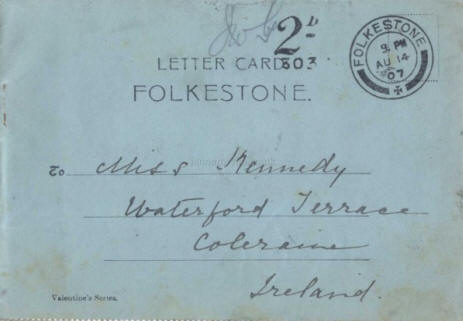 2D
LETTER CARD
603
FOLKESTONE.
FOLKESTONE
9 PM
AU 14
07
To Miss Kennedy
Waterford Terrace
Coleraine
Ireland.
Valentine's Series.